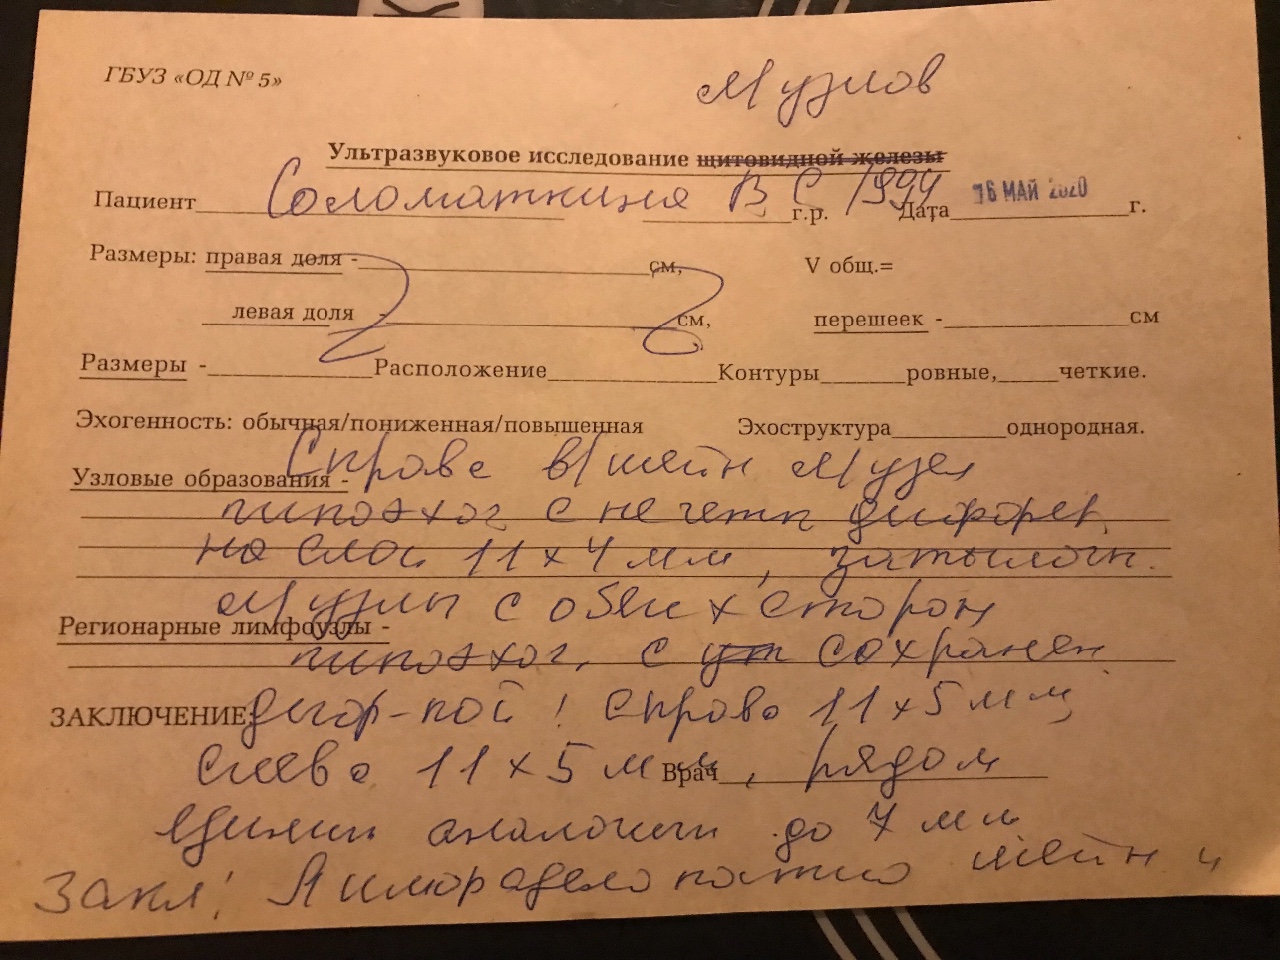 ГБУЗ «ОД № 5»
л/узлов
Ультразвуковое исследование щитовидной железы
Пациент Соломаткина В С 1994 г.р. Дата 16 МАЙ 2020 г.
Размеры: правая доля - см, V общ.=
левая доля - см, перешеек - см
Размеры - Расположение Контуры ровные, четкие.
Эхогенность: обычная/пониженная/повышенная Эхоструктура однородная.
Справа в/шейн л/узел
Узловые образования -
гипоэхог с нечетк дифферен
на слои 11 х 4 мм, затылочн.
л/узлы с обеих сторон
Регионарные лимфоузлы -
гипоэхог, с сохранен
ЗАКЛЮЧЕНИЕ: диф-кой! справа 11 х 5 мм
слева 11 х 5 мм, рядом
Врач
единичн аналогичн до 7 мм
Закл! Лимфаденопатия шейн и